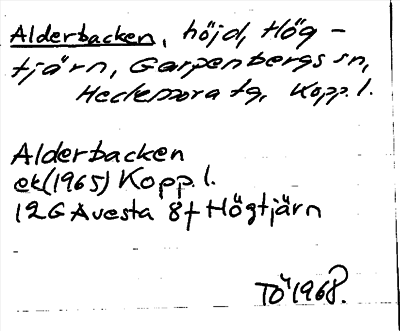 Alderbacken, höjd, Hög-
tjärn, Garpenbergs sn,
Hedemora tg, Kopp. l.
Alderbacken
ek (1965) Kopp. l.
12G Avesta 8f Högtjärn
TÖ 1968.